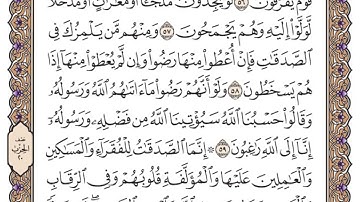 قَوْمٌ يَفْرَقُونَ ٥٦ لَوْ يَجِدُونَ مَلْجَـًٔا أَوْ مَغَـٰرَٰتٍ أَوْ مُدَّخَلًا
لَّوَلَّوْا۟ إِلَيْهِ وَهُمْ يَجْمَحُونَ ٥٧ وَمِنْهُم مَّن يَلْمِزُكَ فِى
ٱلصَّدَقَـٰتِ فَإِنْ أُعْطُوا۟ مِنْهَا رَضُوا۟ وَإِن لَّمْ يُعْطَوْا۟ مِنْهَآ إِذَا
هُمْ يَسْخَطُونَ ٥٨ وَلَوْ أَنَّهُمْ رَضُوا۟ مَآ ءَاتَىٰهُمُ ٱللَّهُ وَرَسُولُهُۥ
وَقَالُوا۟ حَسْبُنَا ٱللَّهُ سَيُؤْتِينَا ٱللَّهُ مِن فَضْلِهِۦ وَرَسُولُهُۥٓ
إِنَّآ إِلَى ٱللَّهِ رَٰغِبُونَ ٥٩ ۞ إِنَّمَا ٱلصَّدَقَـٰتُ لِلْفُقَرَآءِ وَٱلْمَسَـٰكِينِ
وَٱلْعَـٰمِلِينَ عَلَيْهَا وَٱلْمُؤَلَّفَةِ قُلُوبُهُمْ وَفِى ٱلرِّقَابِ
نصف
الحزب
٢٠